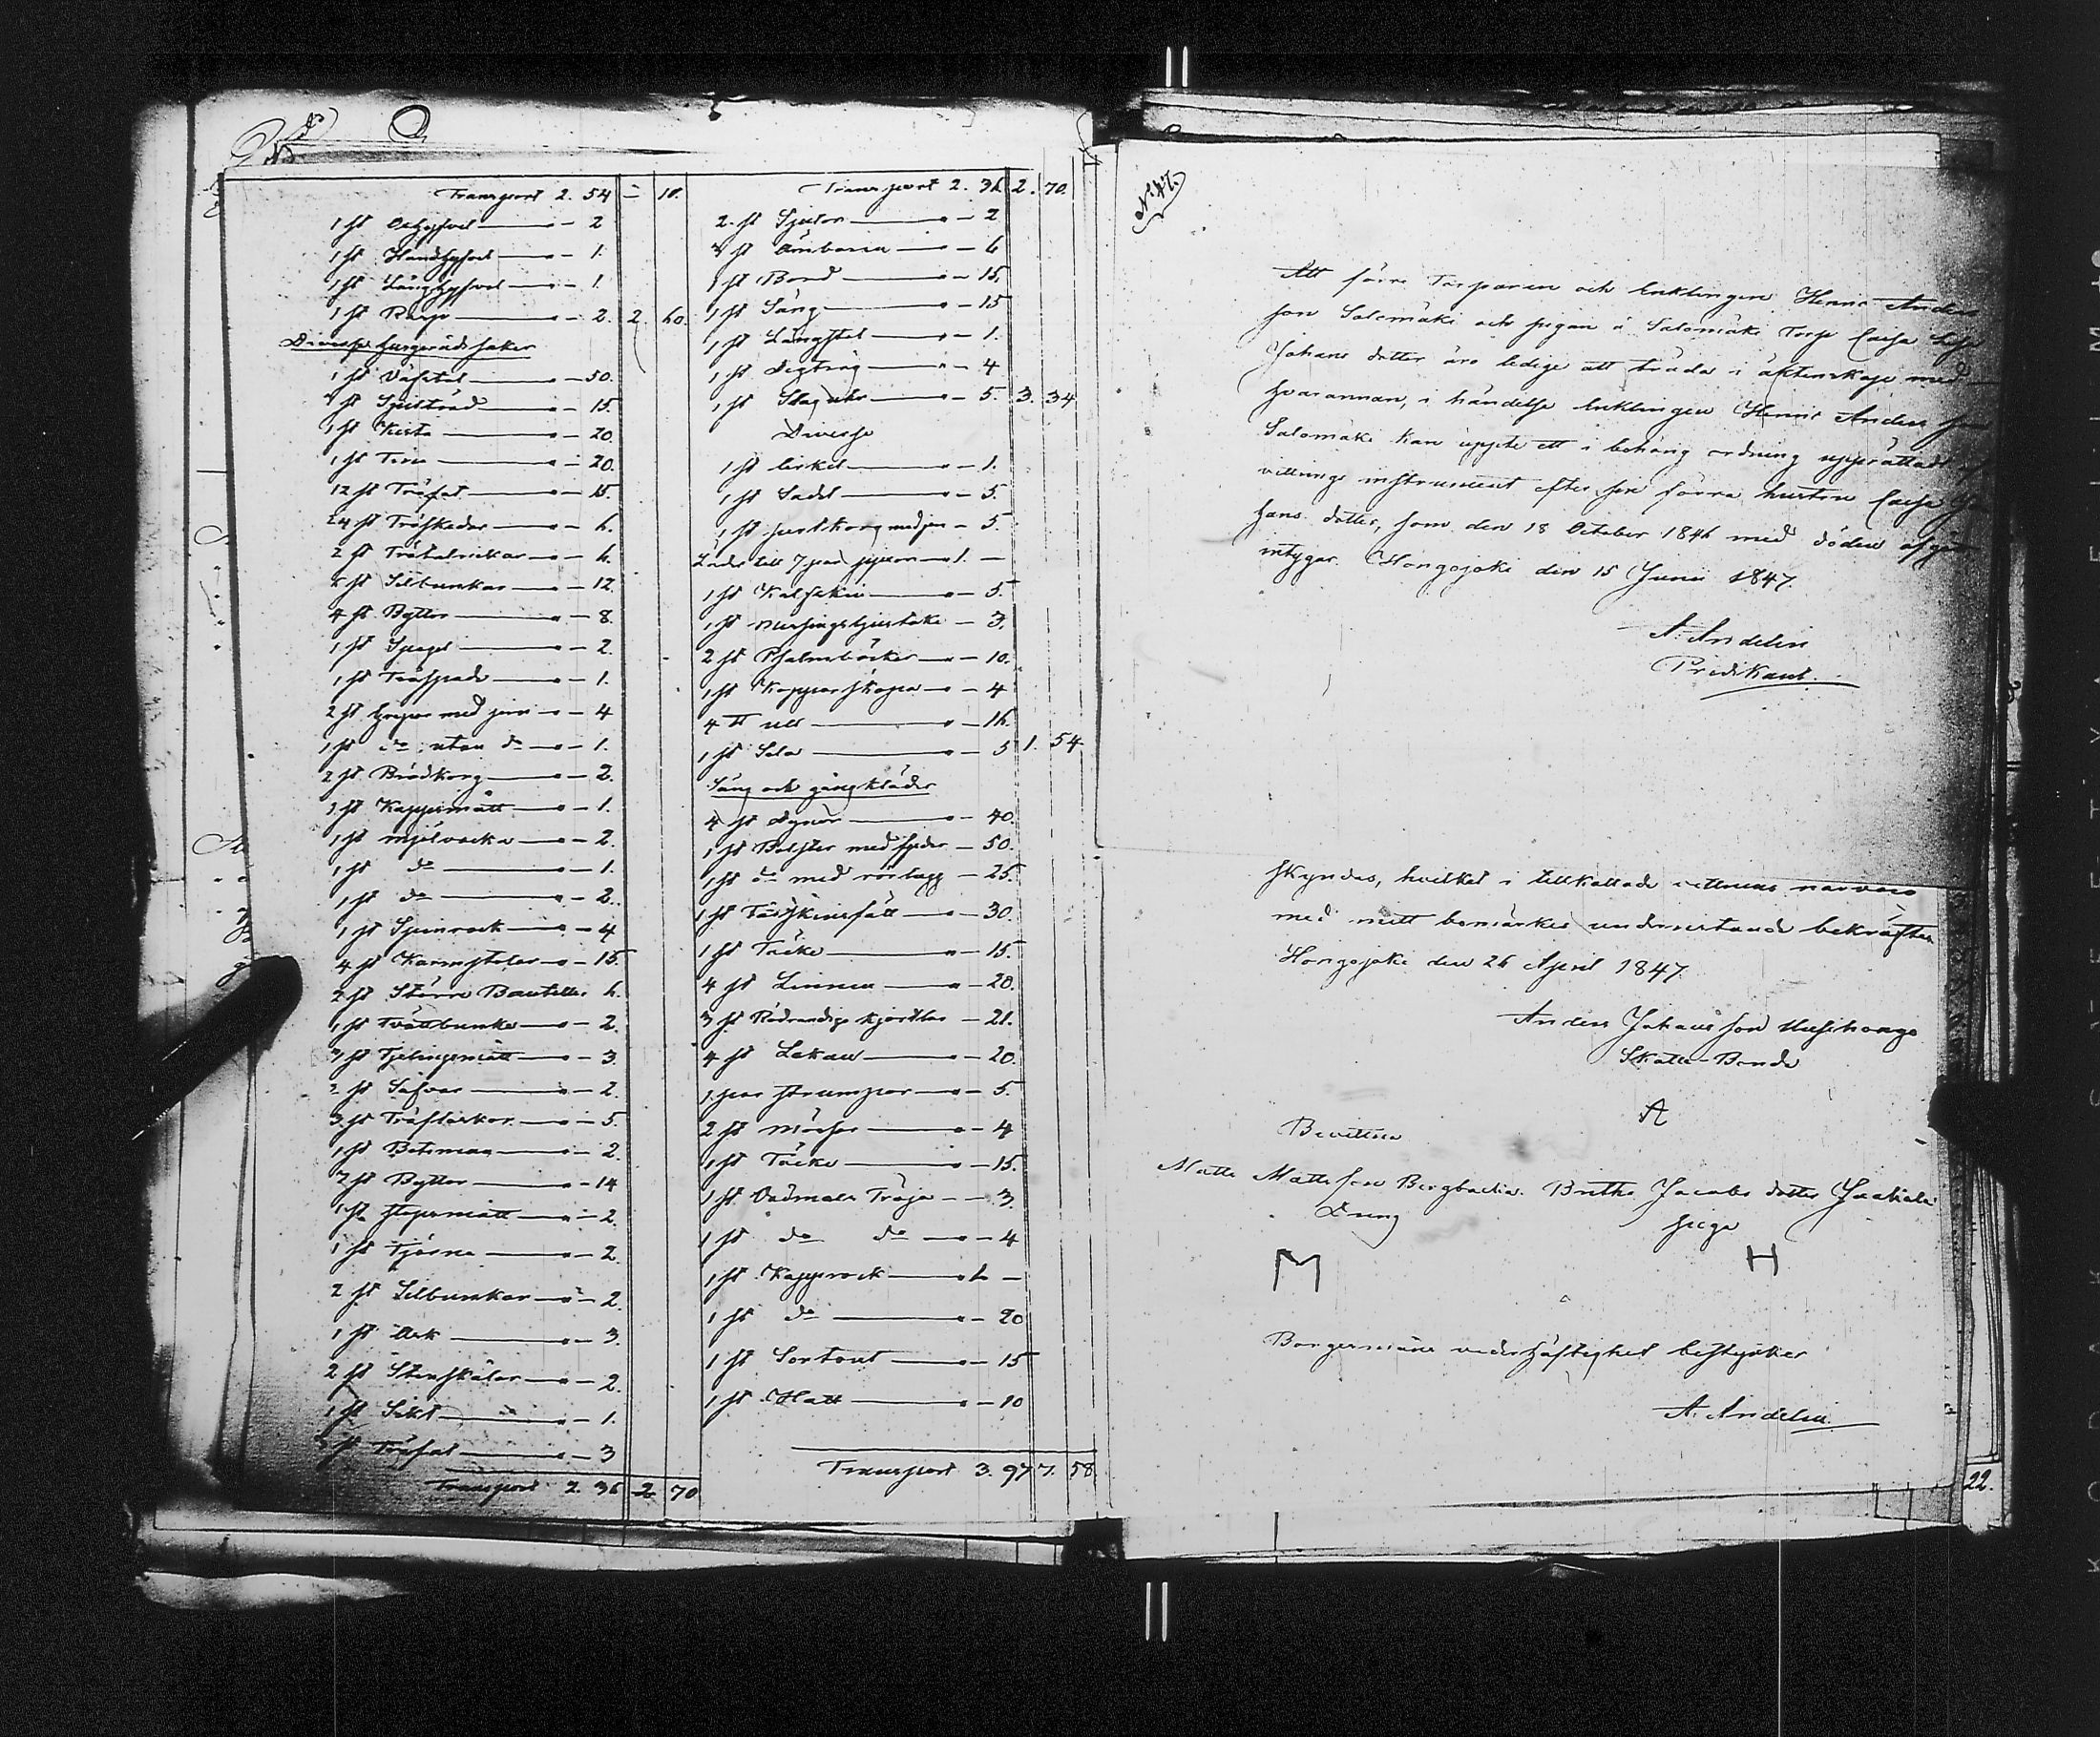 Transport 2. 54 — 10.
1 st — 2
1 st Handhyfvel — 1.
1 st Långhyfvel — 1.
1 st Rasp — 2. 2. 60.
Diverse husgeråds saker
1 st Väfstol — 50.
1 st — 15.
1 st Kista — 20.
1 st Tina — 20.
12 st Träfat — 15.
24 st Träskedar — 6.
2 st Trätalrickar — 6.
8 st Silbunkar — 12.
4 st Byttor — 8.
1 st Spegel — 2.
1 st Träspade — 1.
2 st grepar med jern — 4
1 st do utan do — 1.
2 st Brödkorg — 2.
1 st Kappemått — 1.
1 st mjölvacka — 2.
1 st do — 1.
1 st do — 2.
1 st Spinrock — 4
4 st Karmstolar — 15.
2 st Större Bouteller 6.
1 st Tvättbunke — 2.
3 st — 3.
2 st Såfvar — 2.
3 st Träflaskor — 5.
1 st — 2.
7 st Byttor — 14
1 st stopsmått — 2.
1 st Tjärna — 2.
2 st Silbunkar — 2.
1 st Ask — 3.
2 st Stenskålar — 2.
1 st Sikt — 1.
3 st Träfat — 3
Transport 2. 36 2. 70
Transport 2. 36 2. 70.
2 st — 2
3 st Ämbaren — 6
1 st Bord — 15.
1 st Säng — 15
1 st Långstol — 1.
1 st Degtråg — 4
1 st Slaguhr — 5. 3. 34
Diverse
1 st Cirkel — 1.
1 st Sadel — 5.
1 st — 5.
Läder till 7 par — 1. —
1 st Kalfskin — 5.
1 st messingsljustake — 3.
2 st Psalmböcker — 10.
1 st Kopparskopa — 4
4 ℔ ull — 16.
1 st Sela — 5 1. 54
Säng och gångkläder
4 st dynor — 40.
1 st Bolster med fjäder — 50.
1 st do med rörlugg — 25.
1 st Fårskinsfäll — 30.
1 st Täcke — 15.
4 st Linnen — 20.
3 st Rödrandiga kjortlar — 21.
4 st Lakan — 20.
1 par strumpor — 5.
2 st mössor — 4
1 st Täcke — 15.
1 st Vadmals Tröja — 3.
1 st do do — 4
1 st Kapprock — —
1 st do — 20
1 st Sortout — 15
1 st Hatt — 10
Transport 3. 97 7. 58.
N. 47.
Att förre Torparen och Enklingen Henric Anders
son Salomäki och pigan å Salomäki Torp Caisa
Johans dotter äro ledige att träda i äktenskap med
hvarannan, i händelse Enklingen Henric Anders son
Salomäki kan uppte ett i behörig ordning upprättadt
vittrings instrument efter sin förra hustru Caisa
hans dotter, som den 18 October 1846 med döden
intygar. Hongojoki den 15 Junii 1847.
A. Andelin
Predikant.
skyndas, hvilket i tillkallade vittnens närvaro
med mitt bomärkes undersättande bekräftas
Hongojoki den 26 April 1847.
Anders Johans son
Skatte-Bonde
A
Bevittna
Matts Matts son Bergbacka. Britha Jacobs dotter
Dreng piga
M H
Borgesmäns vederhäftighet bestyrker
A. Andelin
22.